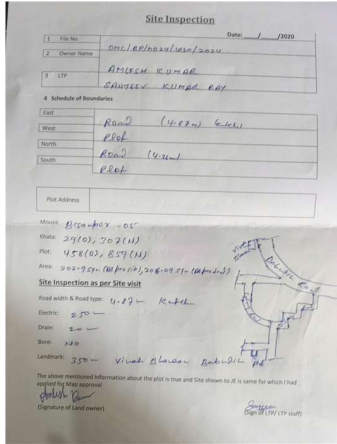 Site Inspection
Date: ___/___/2020
1 File No. DMC/BP/0024/1020/2024
2 Owner Name AMLESH KUMAR
3 LTP SANJEEV KUMAR RAY
4 Schedule of Boundaries
East Road (4.87m) Kutch
West Plot
North Road (4.2m)
South Plot
Plot Address
Mouza: 05
Khata: 29(O), 307(N)
Plot: 458(O), 859(N)
Area: 202.9 Sqm
Site Inspection as per Site visit
Road width & Road type: 4.87m Kutch
Electric: 250m
Drain: 20m
Bore: NO
Landmark: 350m Vivah Bhawan
The above mentioned information about the plot is true and Site shown to JE is same for which I had
applied for Map approval
(Signature of Land owner)
(Sign of LTP/ LTP staff)